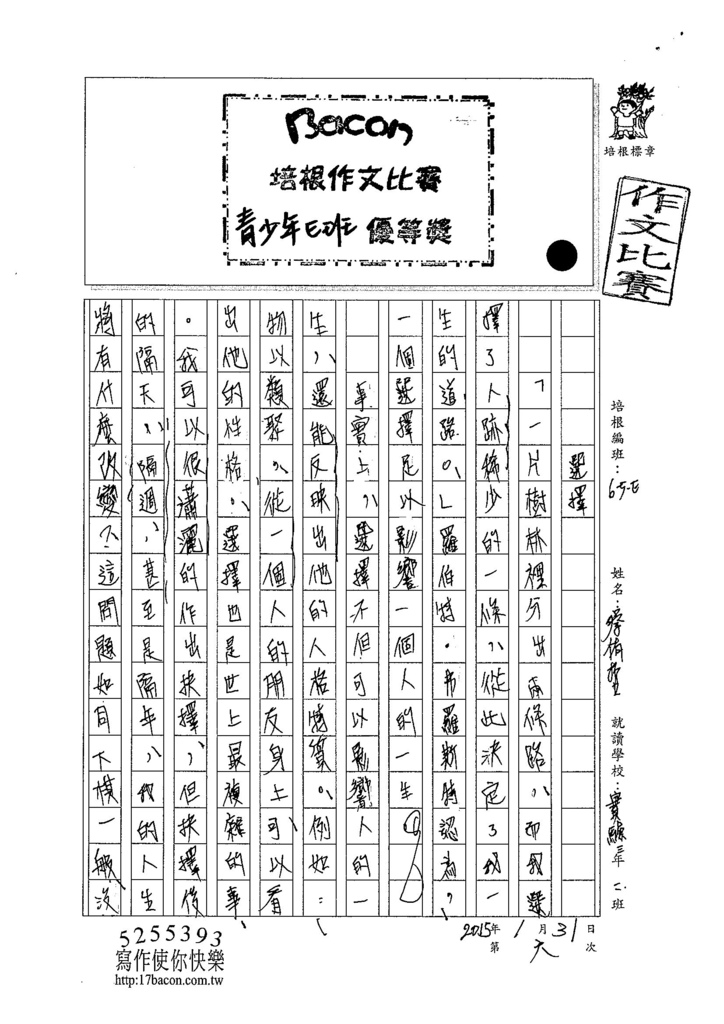 Bacon
培根作文比賽
青少年E班 優等獎
培根標章
作文比賽
培根編班：65-E
姓名：
就讀學校：實驗 三年 二班
選擇
「一片樹林裡分出兩條路，而我選
擇了人跡稀少的一條，從此決定了我一
生的道路。」羅伯特．弗羅斯特認為，
一個選擇足以影響一個人的一生。
事實上，選擇不但可以影響人的一
生，還能反映出他的人格特質。例如：
物以類聚，從一個人的朋友身上可以看
出他的性格，選擇也是世上最複雜的事
。我可以很瀟灑的作出抉擇，但抉擇後
的隔天，隔週，甚至是隔年，我的人生
將有什麼改變？這問題如同下棋一般沒
2015年 1月 31日
第 六 次
5255393
寫作使你快樂
http:17bacon.com.tw